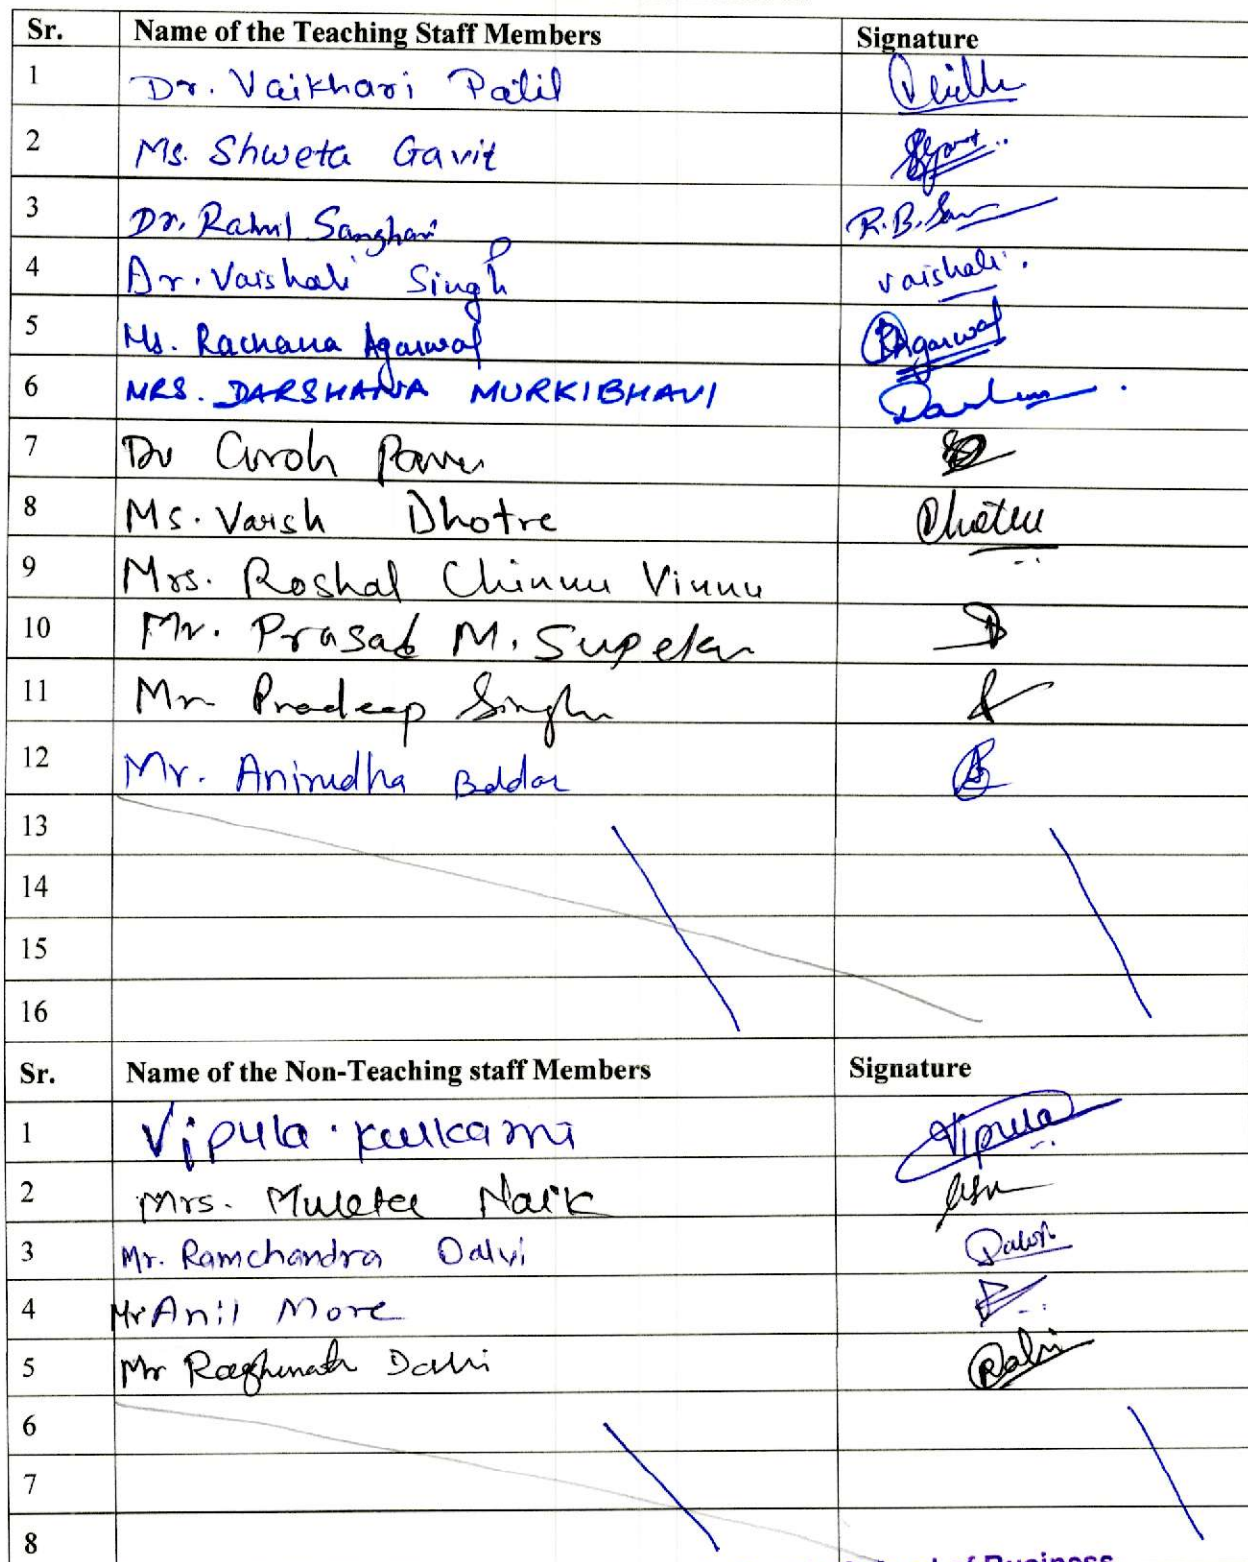 Sr. Name of the Teaching Staff Members Signature
1 Dr. Vaikhari Patil
2 Ms. Shweta Gavit
3 Dr. Rahul Sanghavi R.B. San
4 Dr. Vaishali Singh vaishali.
5 Ms. Rachana Agarwal RAgarwal
6 MRS. DARSHANA MURKIBHAVI
7 Dr
8 Ms. Varsh Dhotre Dhotre
9 Mrs. Roshal Chinnu Vinnu
10 Mr. Prasad M. Supekar
11 Mr Pradeep Singh
12 Mr. Anirudha
13
14
15
16
Sr. Name of the Non-Teaching staff Members Signature
1 Vipula . Kulkarni Vipula
2 Mrs. Naik
3 Mr. Ramchandra Dalvi Dalvi
4 Mr Anil More
5 Mr Raghunath Dalvi Dalvi
6
7
8
of Business